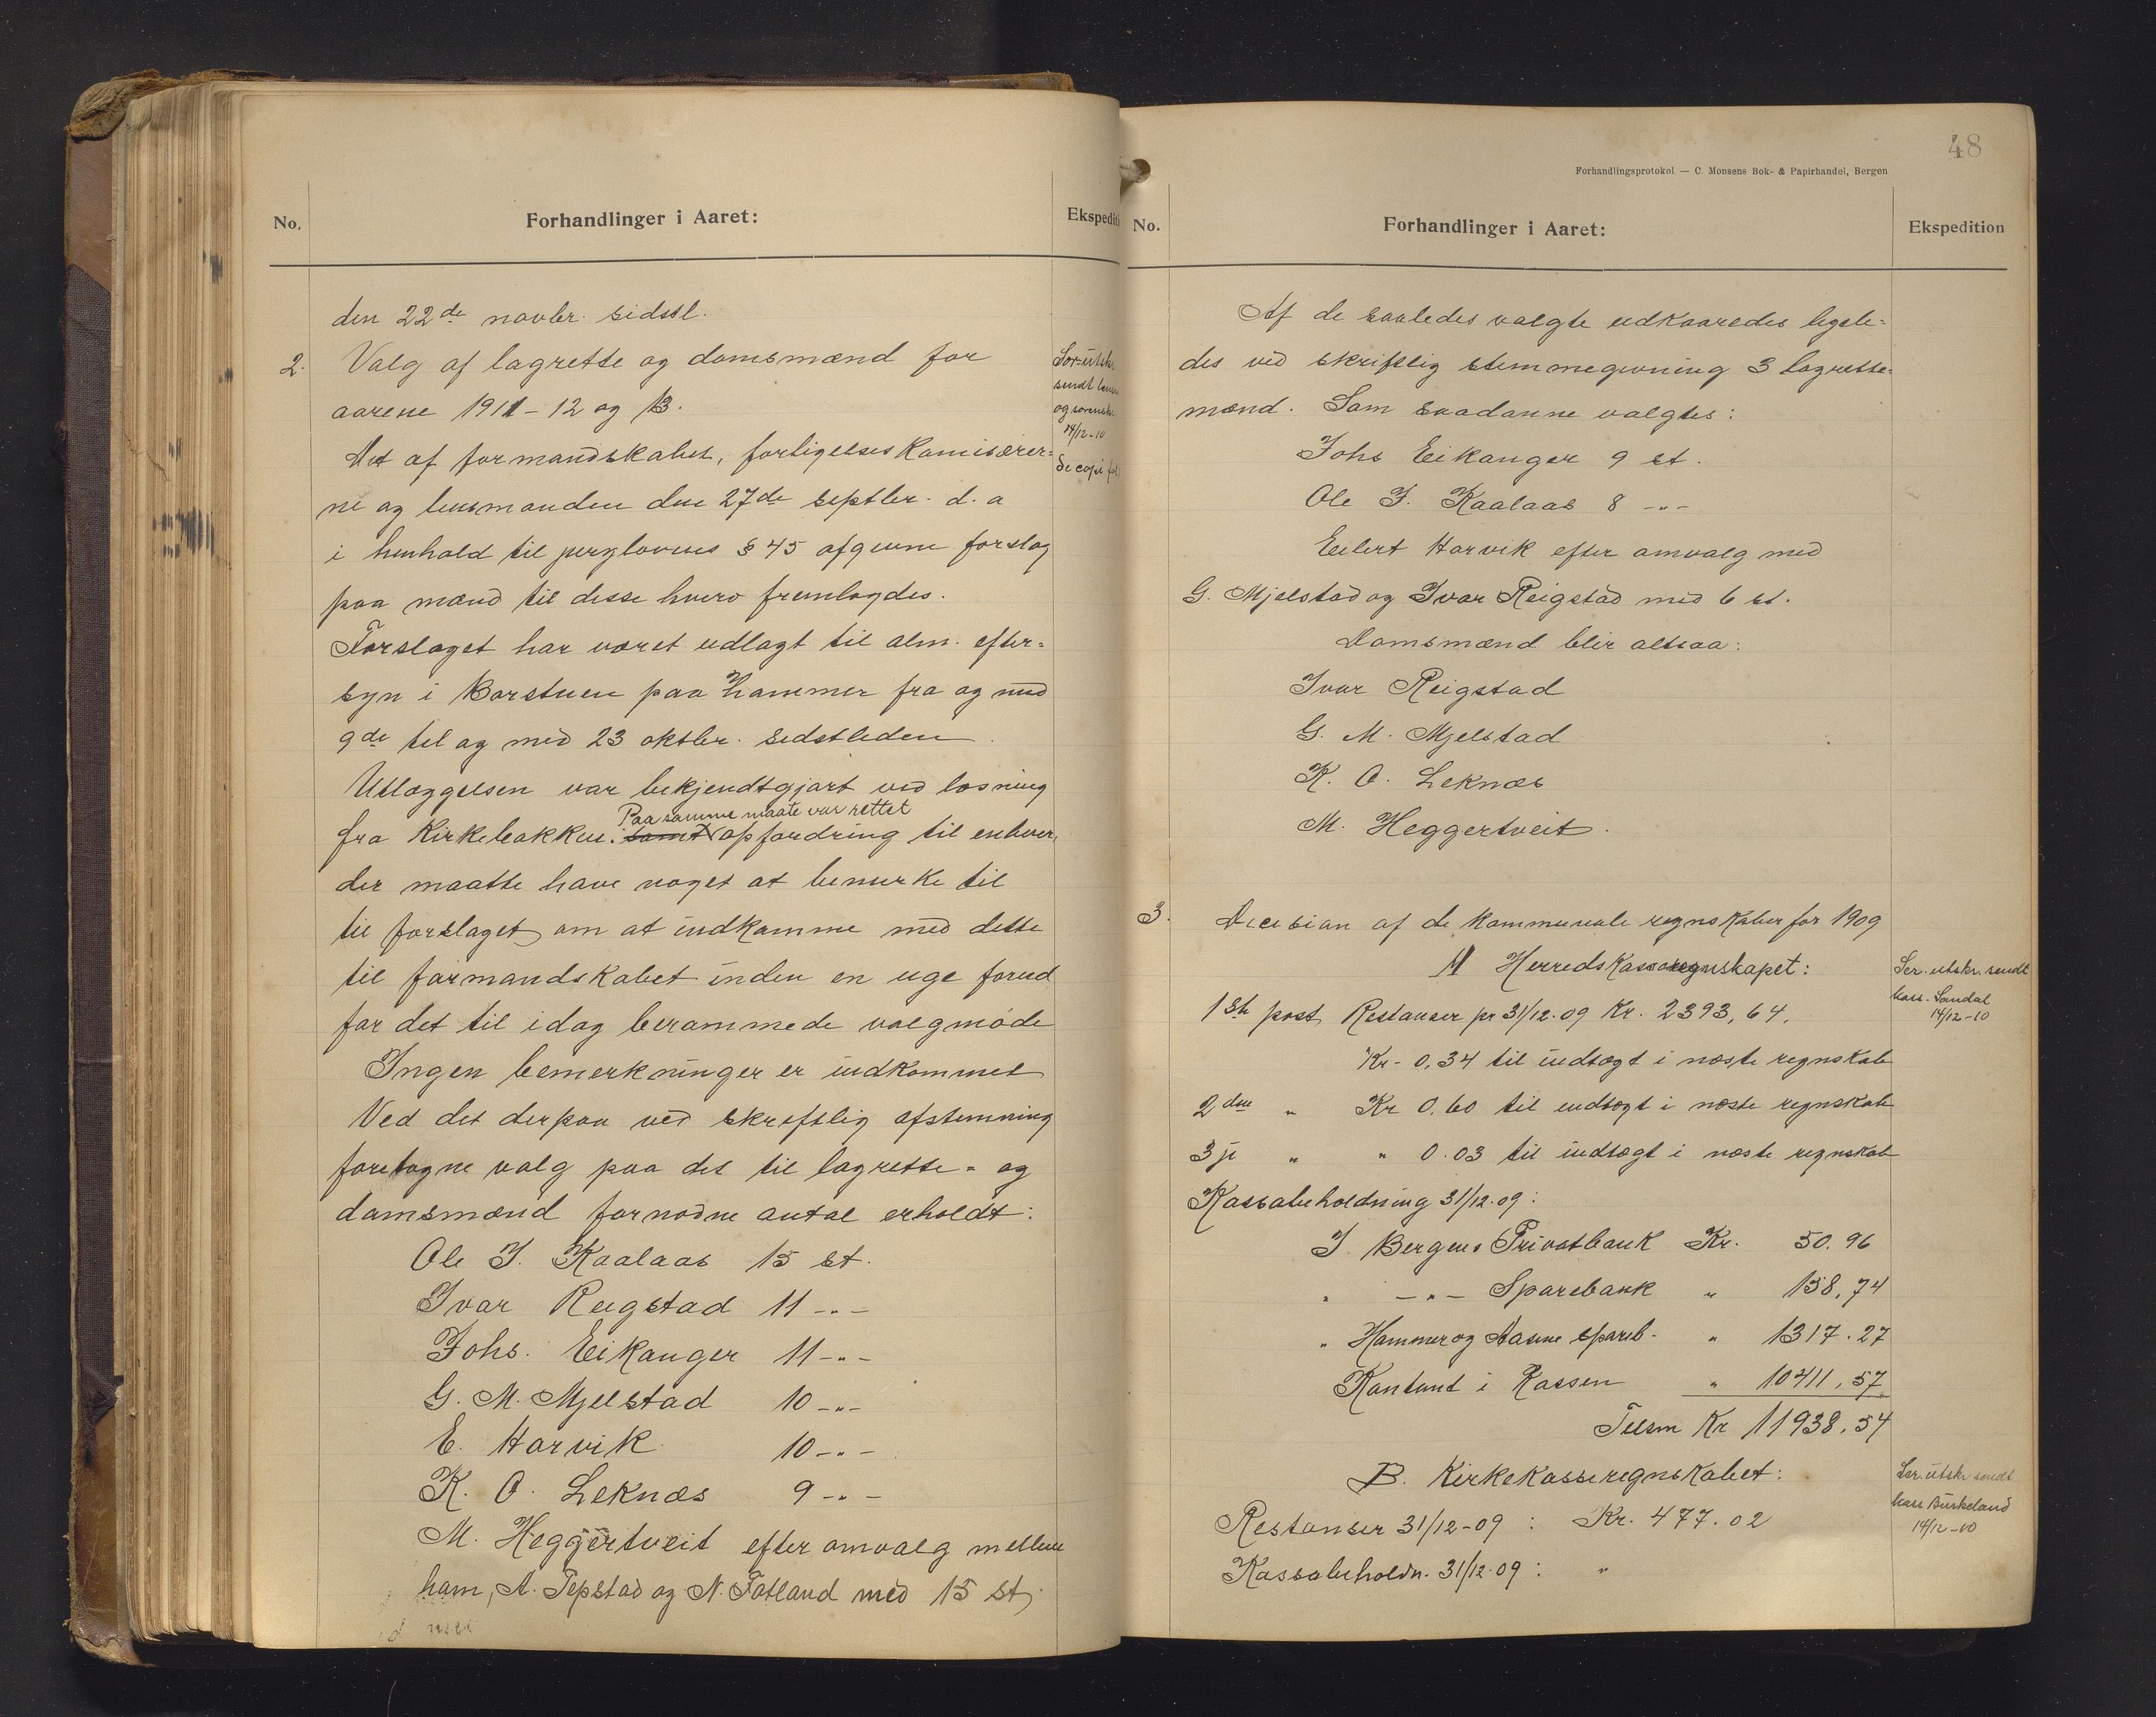 No.
Forhandlinger i Aaret:
den 22de novbr. sidstl.
2. Valg af lagrette og domsmænd for
aarene 1911-12 og 13.
Det af formandskabet, forligelses Komisærer-
ne og lensmanden den 27de septbr. d. a
i henhold til jurylovens § 45 afgivne forslag
paa mænd til disse hverv fremlagdes.
Forslaget har været udlagt til alm. efter-
syn i Borstuen paa Hammer fra og med
9de til og med 23 oktbr. sidstleden.
Utlæggelsen var bekjendtgjort ved læsning
Paa samme maate var rettet
fra Kirkebakken. samt opfordring til enhver,
der maatte have noget at bemerke til
til forslaget, om at indkomme med dette
til formandskabet inden en uge forud
for det til idag berammede valgmøde
Ingen bemerkninger er indkommet
Ved det derpaa ved skriftlig afstemning
foretagne valg paa det til lagrette- og
domsmænd fornødne antal erholdt:
Ole J. Kaalaas 15 st.
Ivar Reigstad 11 -"-
Johs. Eikanger 11 -"-
G. M. Mjelstad 10 -"-
E. Horvik 10 -"-
K. O. Leknæs 9 -"-
M. Heggertveit efter omvalg mellem
ham, A. Tepstad og N. Fotland med 15 st.
Ekspedit
sendt
og sorensk.
14/12-10
48
Forhandlingsprotokol — C. Monsens Bok- & Papirhandel, Bergen
No.
Forhandlinger i Aaret:
Ekspedition
Af de saaledes valgte udkaaredes ligele-
des ved skriftlig stemmegivning 3 Lagrette-
mænd. Som saadanne valgtes:
Johs Eikanger 9 st.
Ole J. Kaalaas 8 -"-
Eilert Horvik efter omvalg med
G. Mjelstad og Ivar Reigstad med 6 st.
Domsmænd blir altsaa:
Ivar Reigstad
G. M. Mjelstad
K. O. Leknæs
M. Heggertveit.
3. Decision af de kommunale regnskaber for 1909
A Herredskasseregnskapet:
1ste post, Restanser pr 31/12.09 Kr. 2393,64.
Kr. 0,34 til indtægt i næste regnskab
2den " Kr 0.60 til indtægt i næste regnskab
3je " " 0.03 til indtægt i næste regnskab
Kassabeholdning 31/12.09:
I Bergens Privatbank Kr. 50.96
" -"- Sparebank " 158,74
" Hammer og Aasene spareb. " 1317.27
Kontant i Kassen " 10411,57
Tilsm Kr 11938.54
B. Kirkekasseregnskabet:
Restanser 31/12-09: Kr. 477.02
Kassabeholdn. 31/12.09: "
Sær. utskr. sendt
kass. Sandal
14/12-10
Sær. utskr. sendt
kass Birkeland
14/12-10